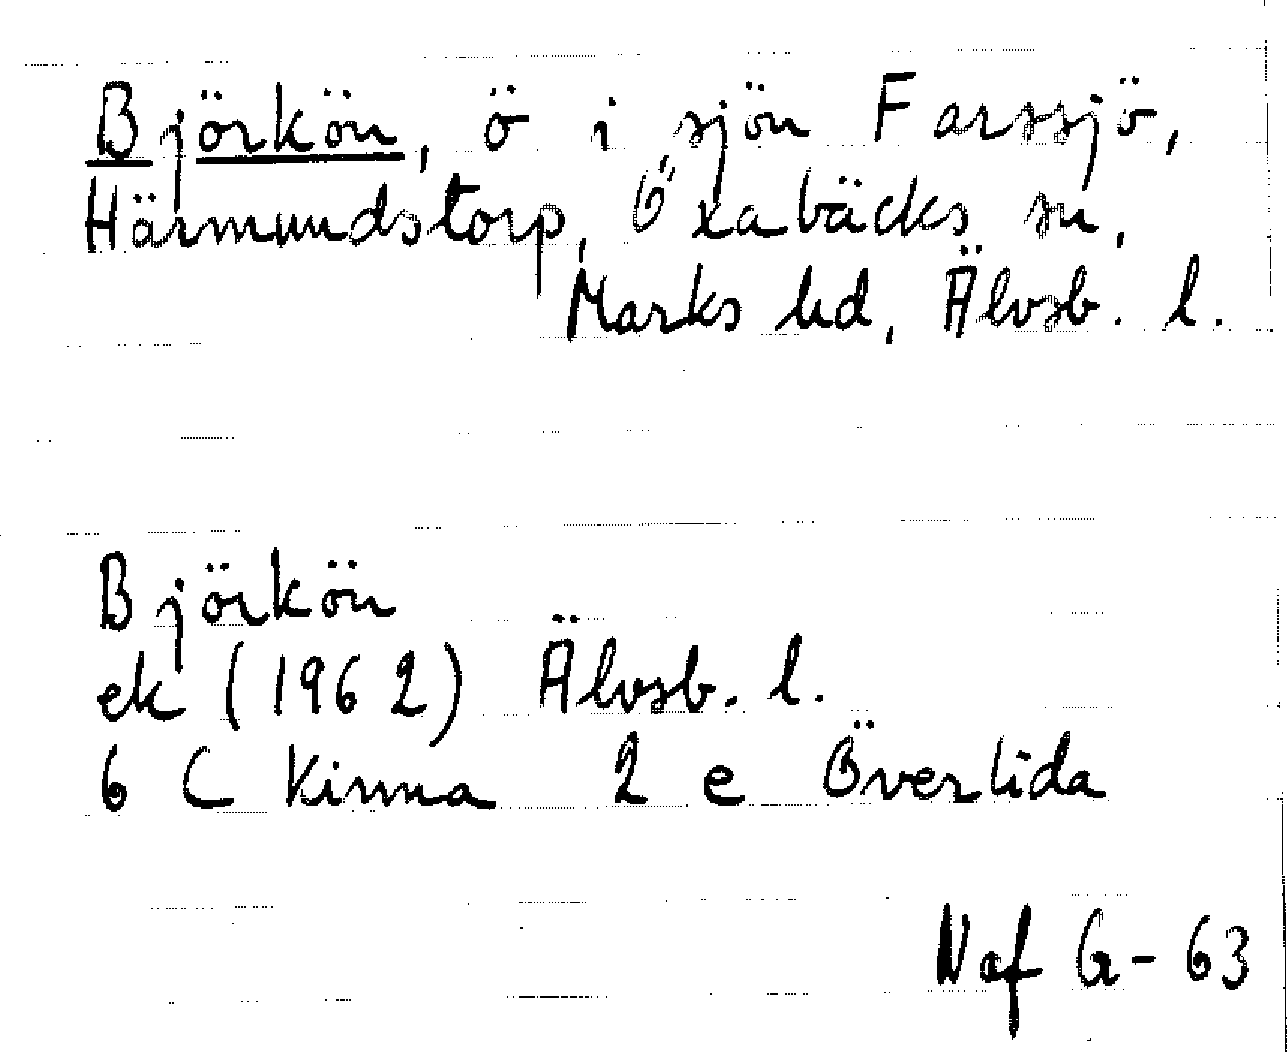 Björkön, ö i sjön Farssjö,
Härmundstorp, Öxabäcks sn,
Marks hd, Älvsb. l.
Björkön
ek (1962) Älvsb. l.
6 C Kinna 2 e Överlida
Naf G-63